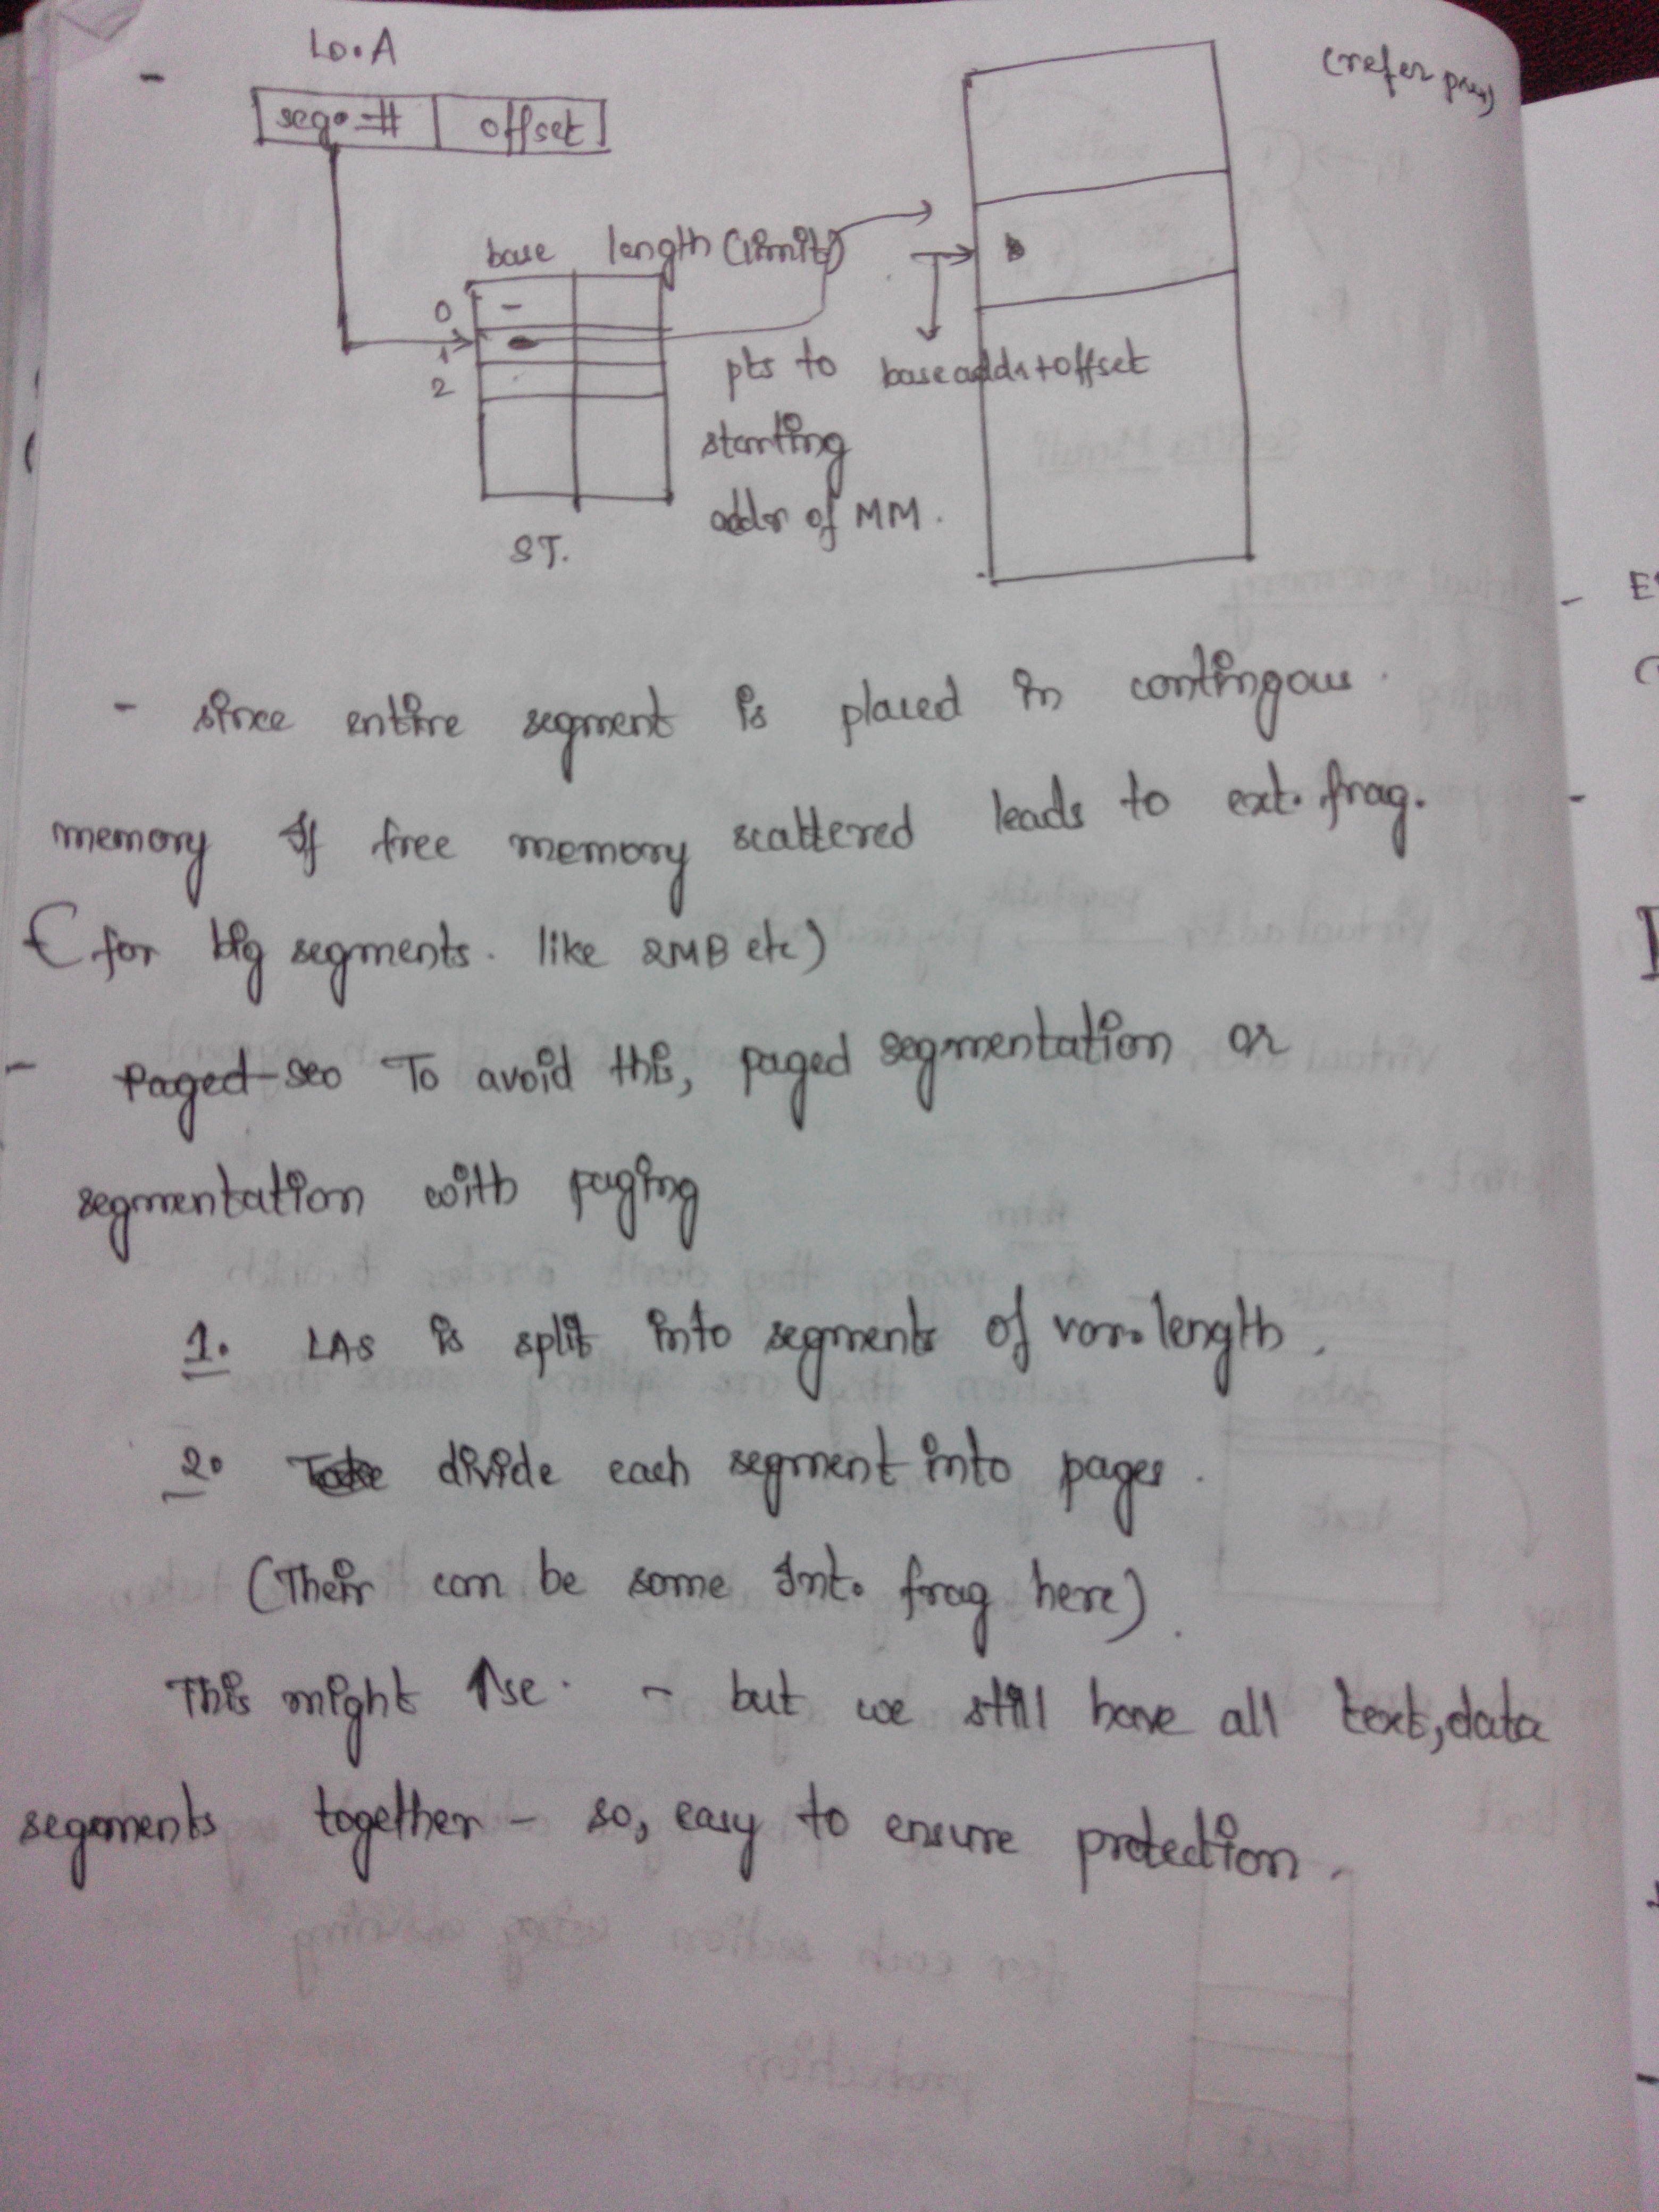 Lo.A
(refer prev)
seg. # offset
base length (limit)
0
1
2
pts to base addr+offset
starting
addr of MM.
ST.
- since entire segment is placed in contingous
memory If free memory scattered leads to ext. frag.
(for big segments. like 2MB etc)
- Paged seo To avoid this, paged segmentation or
segmentation with paging
1. LAS is split into segments of var. length.
2. divide each segment into pages.
(Their can be some Int. frag here).
This might ↑se. - but we still have all text, data
segments together - so, easy to ensure protection.